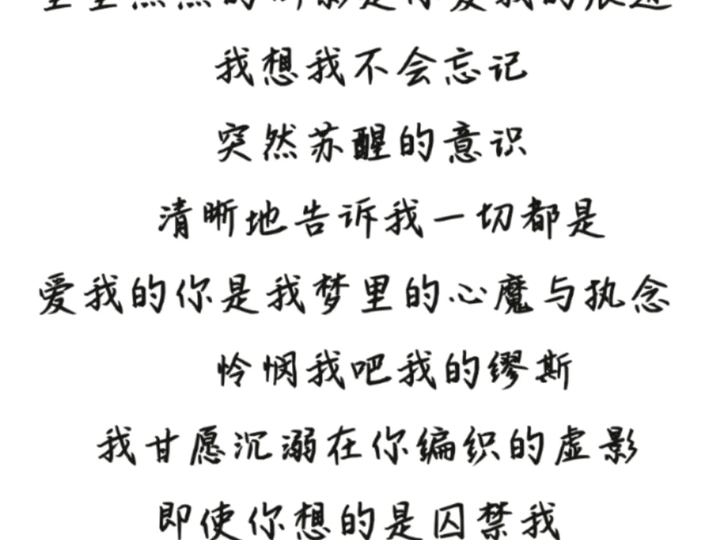 的 是你爱我的痕迹
我想我不会忘记
突然苏醒的意识
清晰地告诉我一切都是
爱我的你是我梦里的心魔与执念
怜悯我吧我的缪斯
我甘愿沉溺在你编织的虚影
即使你想的是囚禁我